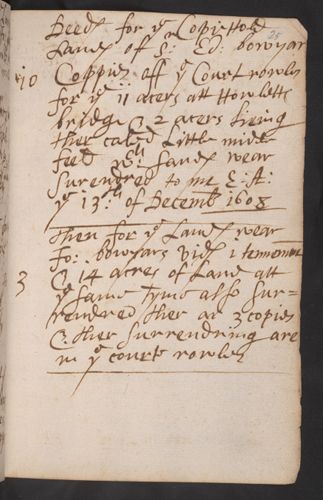 25
Deeds for ye Copi Hold
Lands of S: Ed: bowyar
10 Coppies off ye Court rowles
for ye 11 acers att Howletts
bridge & 2 acers lieing
ther caled Little midle
feed wch Lands wear
Surendred to me E: A:
ye 13th of Decemb 1608
then for ye Lands wear
Jo: bowyars vidz 1 tennement
3 & 14 acres of Land att
ye same tyme also Sur=
rendred ther ar 3 copies
& ther surrendring are
in ye court rowles